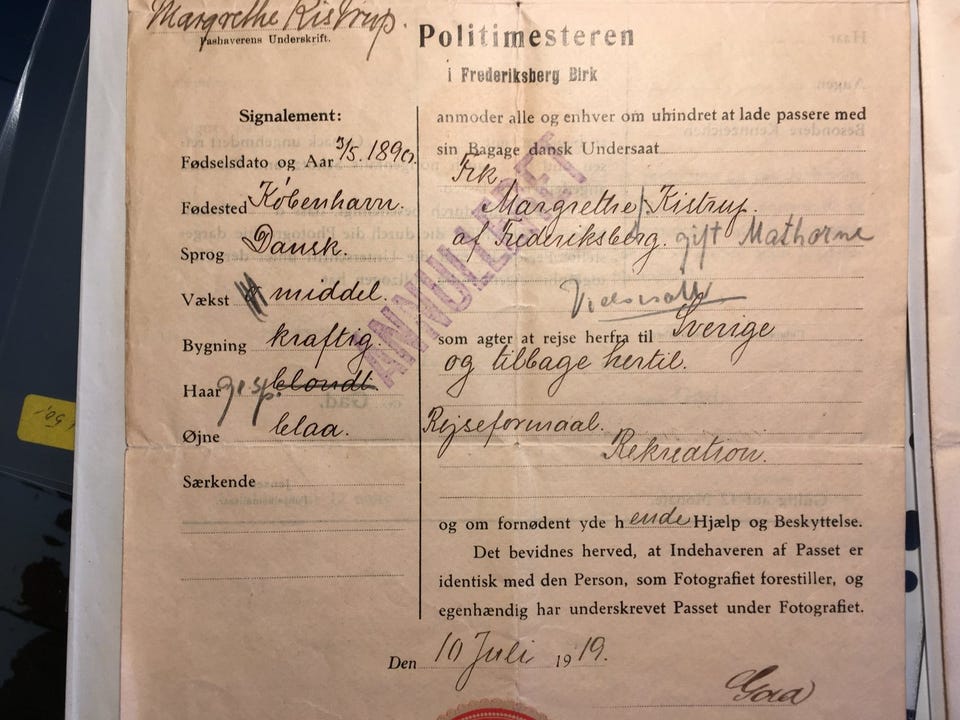 Margrethe Kistrup.
Pashaverens Underskrift.
Politimesteren
i Frederiksberg Birk
Signalement:
Fødselsdato og Aar 3/5. 1890.
Fødested København.
Sprog Dansk.
Vækst middel.
Bygning kraftig.
Haar blondt.
Øjne blaa.
Særkende
anmoder alle og enhver om uhindret at lade passere med
sin Bagage dansk Undersaat
Frk.
Margrethe Kistrup.
af Frederiksberg. gift Mathorne
som agter at rejse herfra til Sverige
og tilbage hertil.
Rejseformaal.
Rekreation.
og om fornødent yde hende Hjælp og Beskyttelse.
Det bevidnes herved, at Indehaveren af Passet er
identisk med den Person, som Fotografiet forestiller, og
egenhændig har underskrevet Passet under Fotografiet.
Den 10 Juli 1919.
ANNULLERET